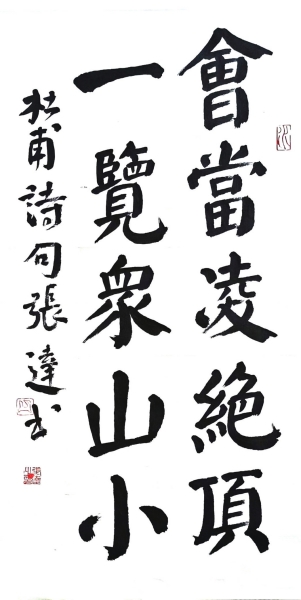 會當凌絕頂
一覽衆山小
杜甫詩句張達书